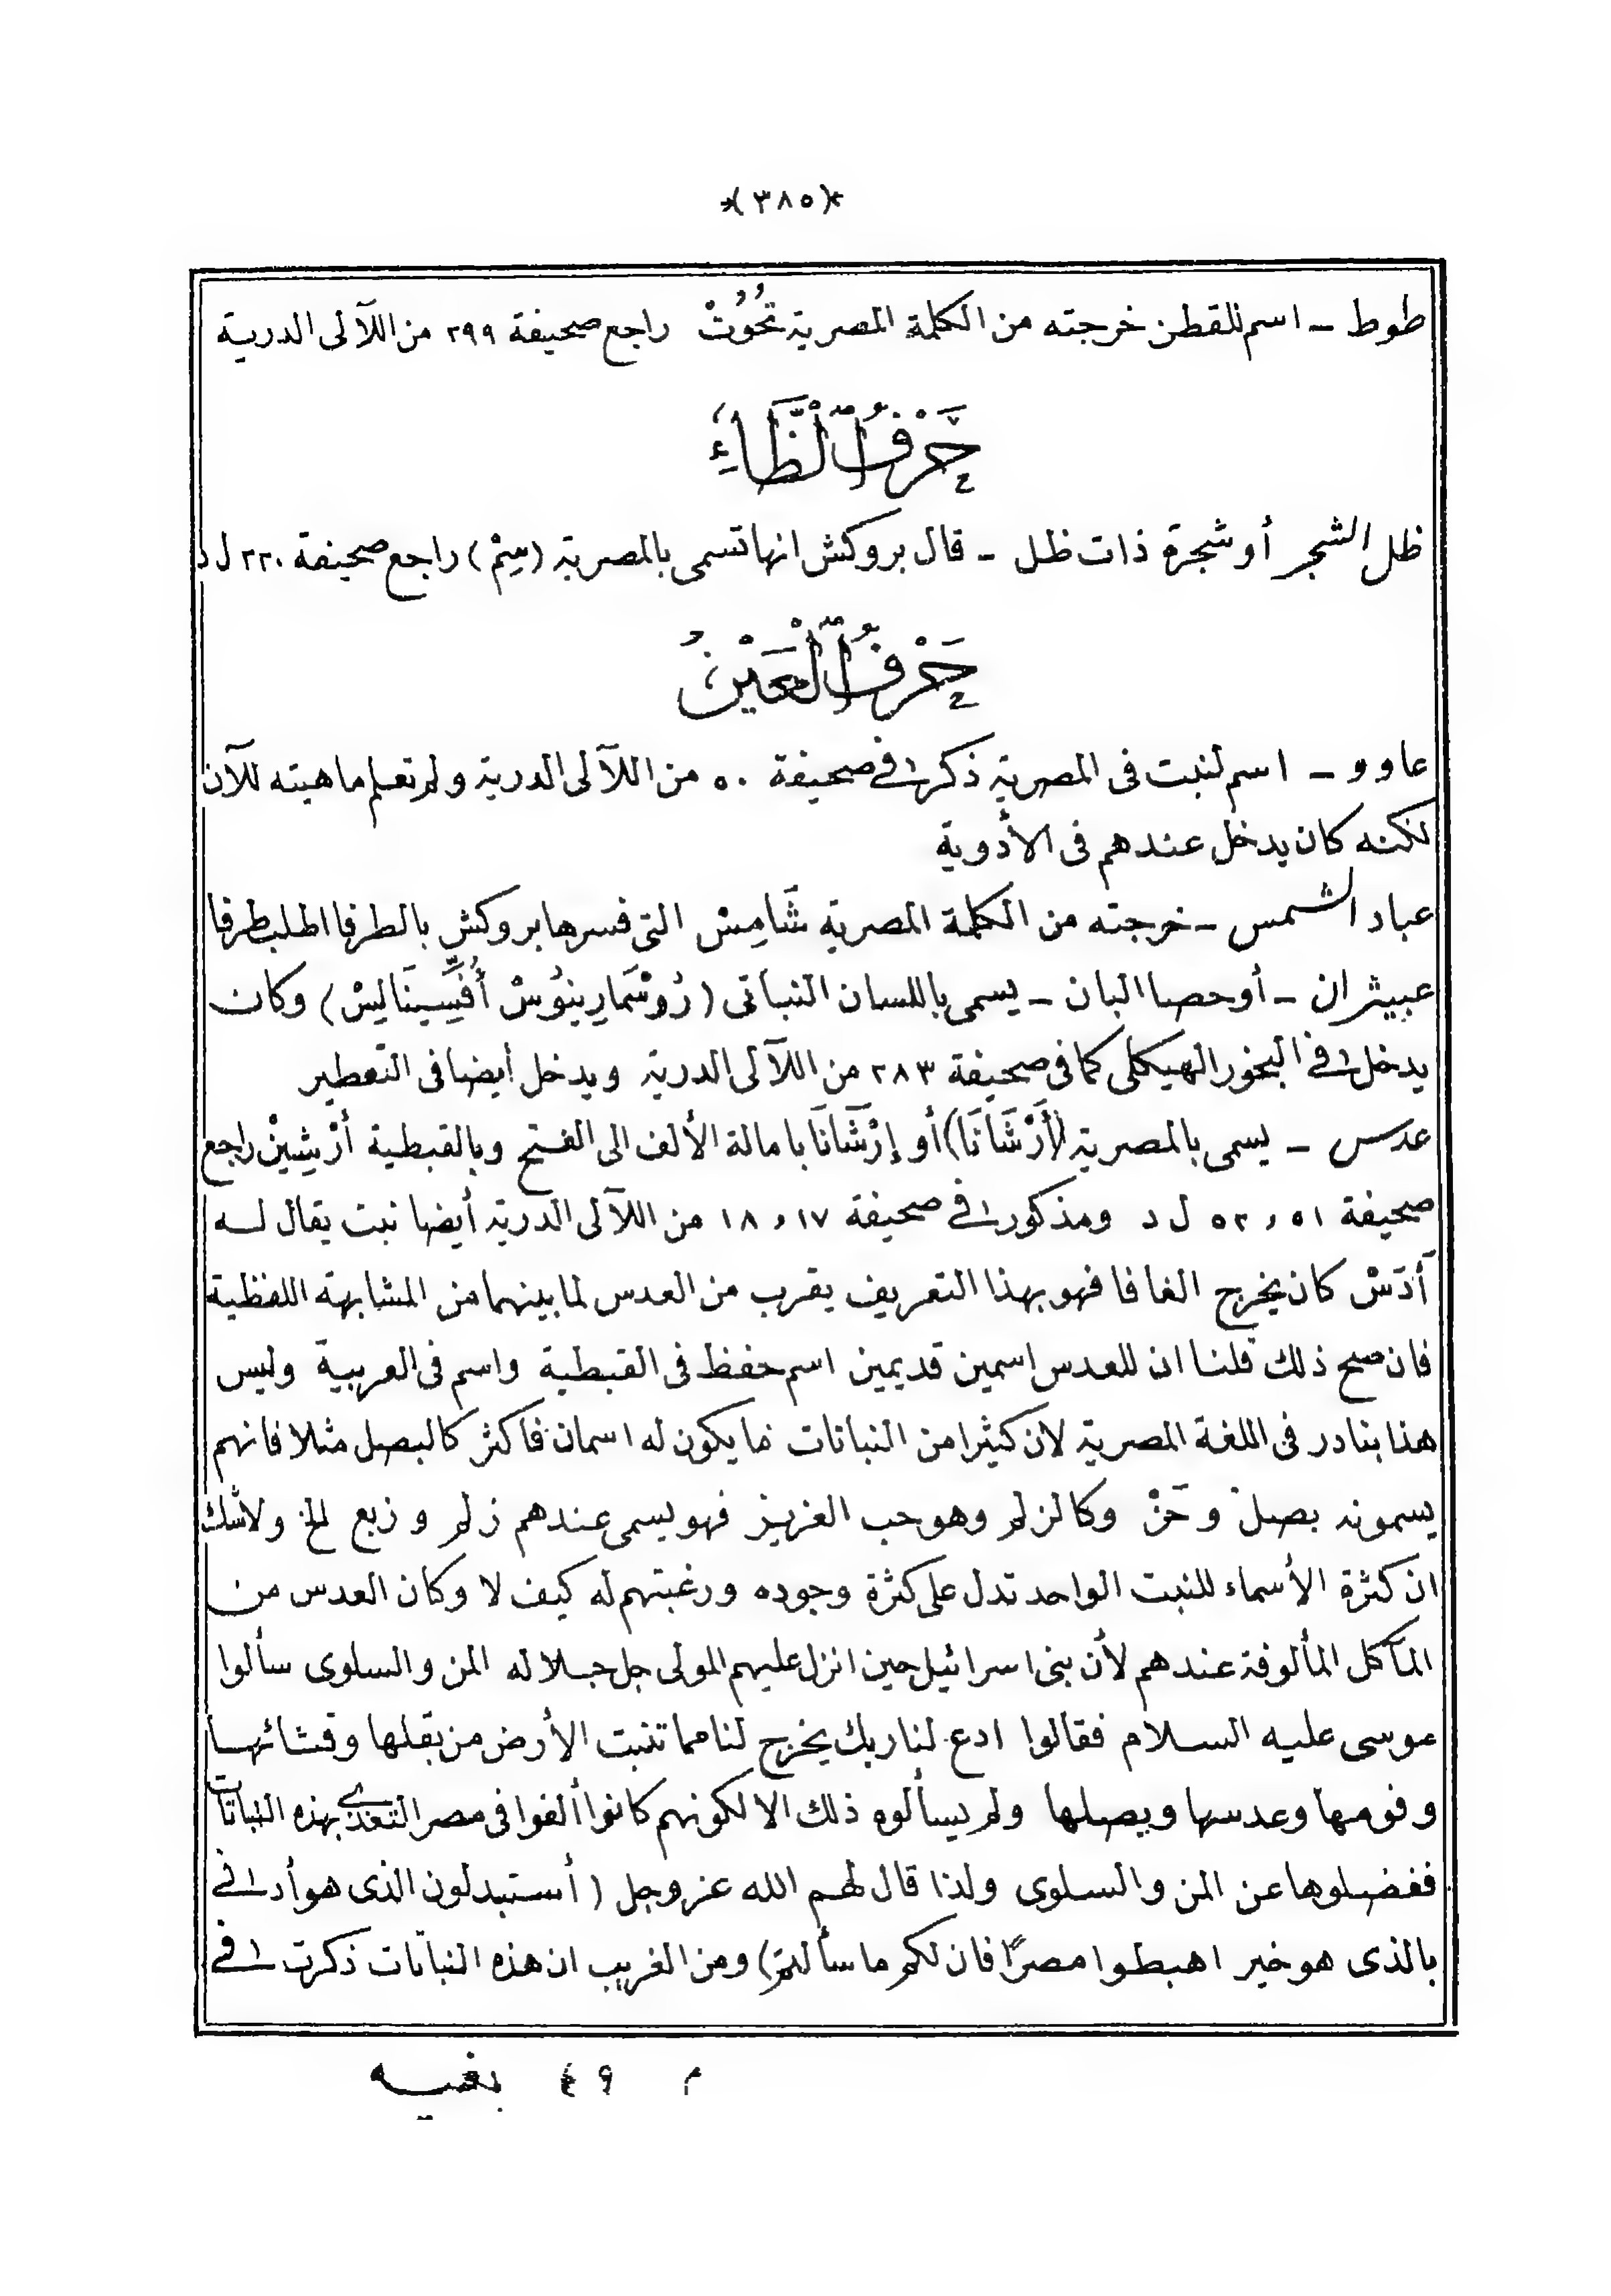 *(٣٨٥)*
طوط ــ اسم للقطن خرجته من الكلمة المصرية تُحُوُتْ راجع صحيفة ٢٩٩ من اللآلى الدرية
حَرْفُ الظَّاءِ
ظل الشجر أو شجرة ذات ظل ــ قال بروكش انها تسمى بالمصرية (سِمْ) راجع صحيفة ٢٢٠ ل د
حَرْفُ الْعَيْنُ
عاوو ــ اسم لنبت فى المصرية ذكر فى صحيفة ٥٠ من اللآلى الدرية ولم تعلم ماهيته للآن
لكنه كان يدخل عندهم فى الأدوية
عباد الشمس ــ خرجته من الكلمة المصرية شَامِسْ التى فسرها بروكش بالطرفا اطلب طرفا
عبيثران ــ أو حصا البان ــ يسمى باللسان النباتى (رُوسْمَارِينوُسْ أُفِّسِينَالِيسْ) وكان
يدخل فى البخور الهيكلى كما فى صحيفة ٢٨٣ من اللآلى الدرية ويدخل أيضا فى التعطير
عدس ــ يسمى بالمصرية (أَرْشَانَا) أو إرْشَانَا بامالة الألف الى الفتح وبالقبطية أرْشِينْ راجع
صحيفة ٥١ و ٥٢ ل د ومذكور فى صحيفة ١٧ و ١٨ من اللآلى الدرية أيضا نبت يقال له
أَدَسْ كان يخرج الفافا فهو بهذا التعريف يقرب من العدس لما بينهما من المشابهة اللفظية
فان صح ذلك قلنا ان للعدس اسمين قديمين اسم حفظ فى القبطية واسم فى العربية وليس
هذا بنادر فى اللغة المصرية لان كثيرا من النباتات ما يكون له اسمان فأكثر كالبصل مثلا فانهم
يسمونه بصل و حَزْ وكالزلم وهو حب العزيز فهو يسمى عندهم زلم و زبع الخ ولا شك
ان كثرة الأسماء للنبت الواحد تدل على كثرة وجوده ورغبتهم له كيف لا وكان العدس من
المآكل المألوفة عندهم لأن بنى اسرائيل حين انزل عليهم المولى جل جلاله المن والسلوى سألوا
موسى عليه السلام فقالوا ادع لنا ربك يخرج لنا مما تنبت الأرض من بقلها وقثائها
وفومها وعدسها وبصلها ولم يسألوه ذلك الا لكونهم كانوا ألفوا فى مصر التغذى بهذه النباتات
ففضلوها عن المن والسلوى ولذا قال لهم الله عز وجل (أستبدلون الذى هو أدنى
بالذى هو خير اهبطوا مصرًا فان لكم ما سألتم) ومن الغريب ان هذه النباتات ذكرت فى
م ٤٩ بغيه